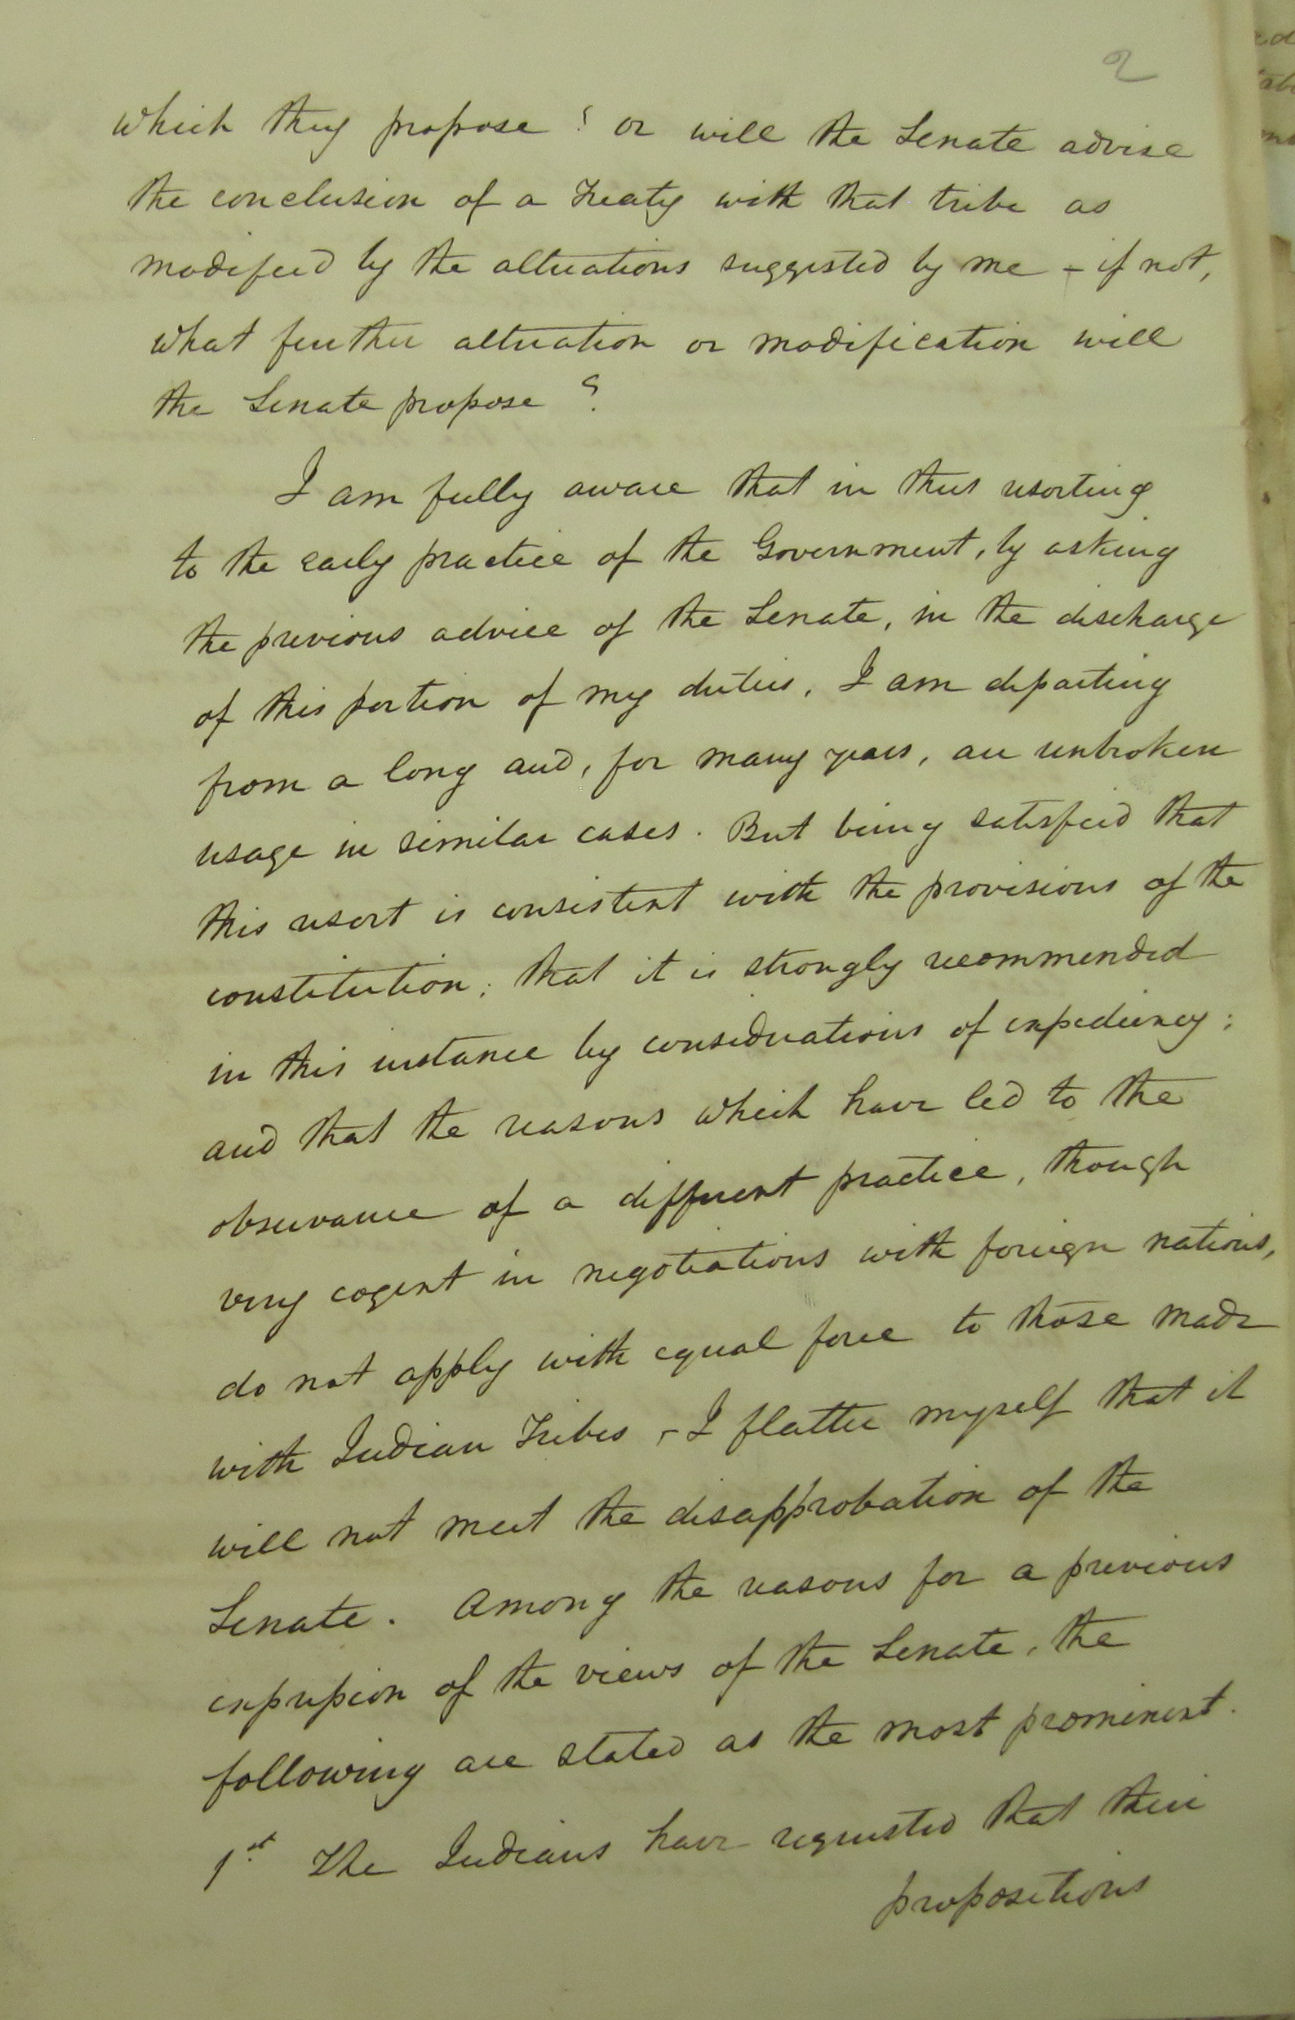 2
which they propose? or will the Senate advise
the conclusion of a Treaty with that tribe as
modified by the alterations suggested by me – if not,
what further alteration or modification will
the Senate propose?
I am fully aware that in thus resorting
to the early practice of the Government, by asking
the previous advice of the Senate, in the discharge
of this portion of my duties, I am departing
from a long and, for many years, an unbroken
usage in similar cases. But being satisfied that
this resort is consistent with the provisions of the
constitution; that it is strongly recommended
in this instance by considerations of expediency;
and that the reasons which have led to the
observance of a different practice, though
very cogent in negotiations with foreign nations,
do not apply with equal force to those made
with Indian Tribes, – I flatter myself that it
will not meet the disapprobation of the
Senate. Among the reasons for a previous
expression of the views of the Senate, the
following are stated as the most prominent.
1st The Indians have requested that their
propositions